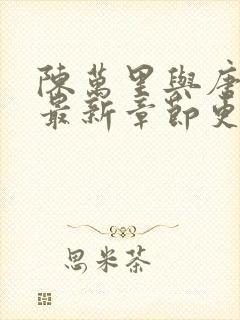 陳萬里與唐
最新章節更
思米茶